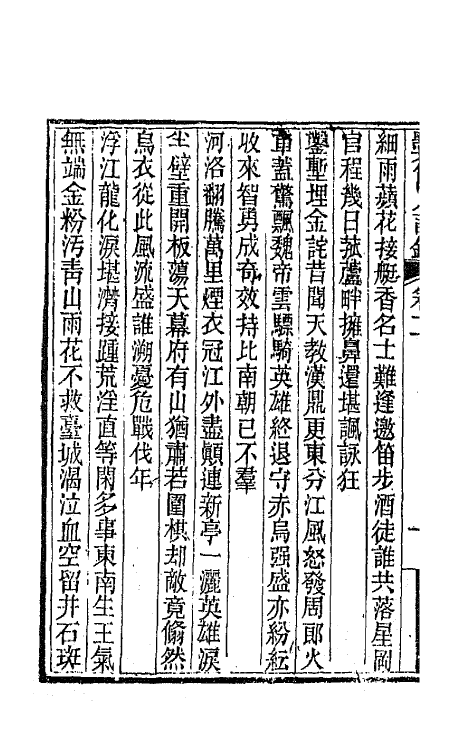 細雨蘋花接艇香名士難逢邀笛步酒徒誰共落星岡
官程幾日菰蘆畔擁鼻還堪諷詠狂
鑿塹埋金詫昔聞天教漢鼎更東分江風怒發周郎火
車蓋驚飄魏帝雲驃騎英雄終退守赤烏强盛亦紛紜
收來智勇成奇效持比南朝已不羣
河洛翻騰萬里煙衣冠江外盡顛連新亭一灑英雄淚
尘壁重開板蕩天幕府有山猶肅若圍棋却敵竟翛然
烏衣從此風流盛誰溯憂危戰伐年
浮江龍化淚堪濟接踵荒淫直等閑多事東南生王氣
無端金粉汚靑山雨花不救臺城渴泣血空留井石斑
卷二